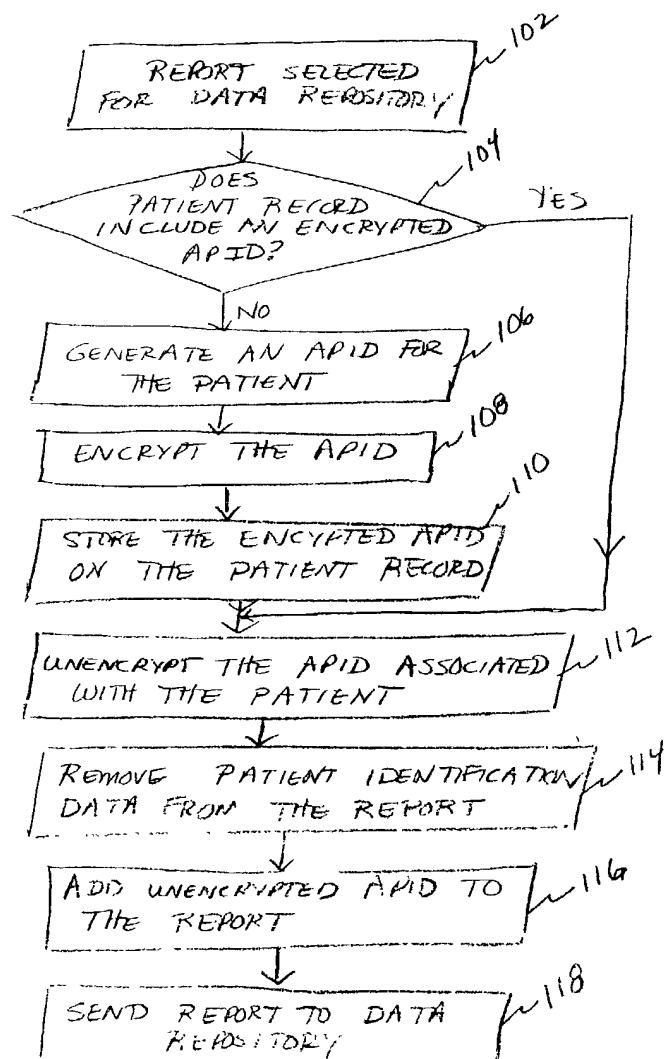 102
REPORT SELECTED
FOR DATA REPOSITORY
104
DOES
PATIENT RECORD
INCLUDE AN ENCRYPTED
APID?
YES
NO
106
GENERATE AN APID FOR
THE PATIENT
108
ENCRYPT THE APID
110
STORE THE ENCYPTED APID
ON THE PATIENT RECORD
112
UNENCRYPT THE APID ASSOCIATED
WITH THE PATIENT
114
REMOVE PATIENT IDENTIFICATION
DATA FROM THE REPORT
116
ADD UNENCRYPTED APID TO
THE REPORT
118
SEND REPORT TO DATA
REPOSITORY